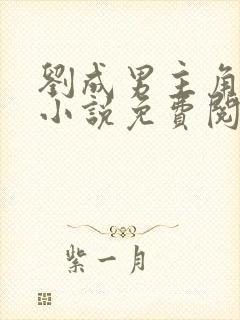 劉成男主角
小說免費閱
紫一月